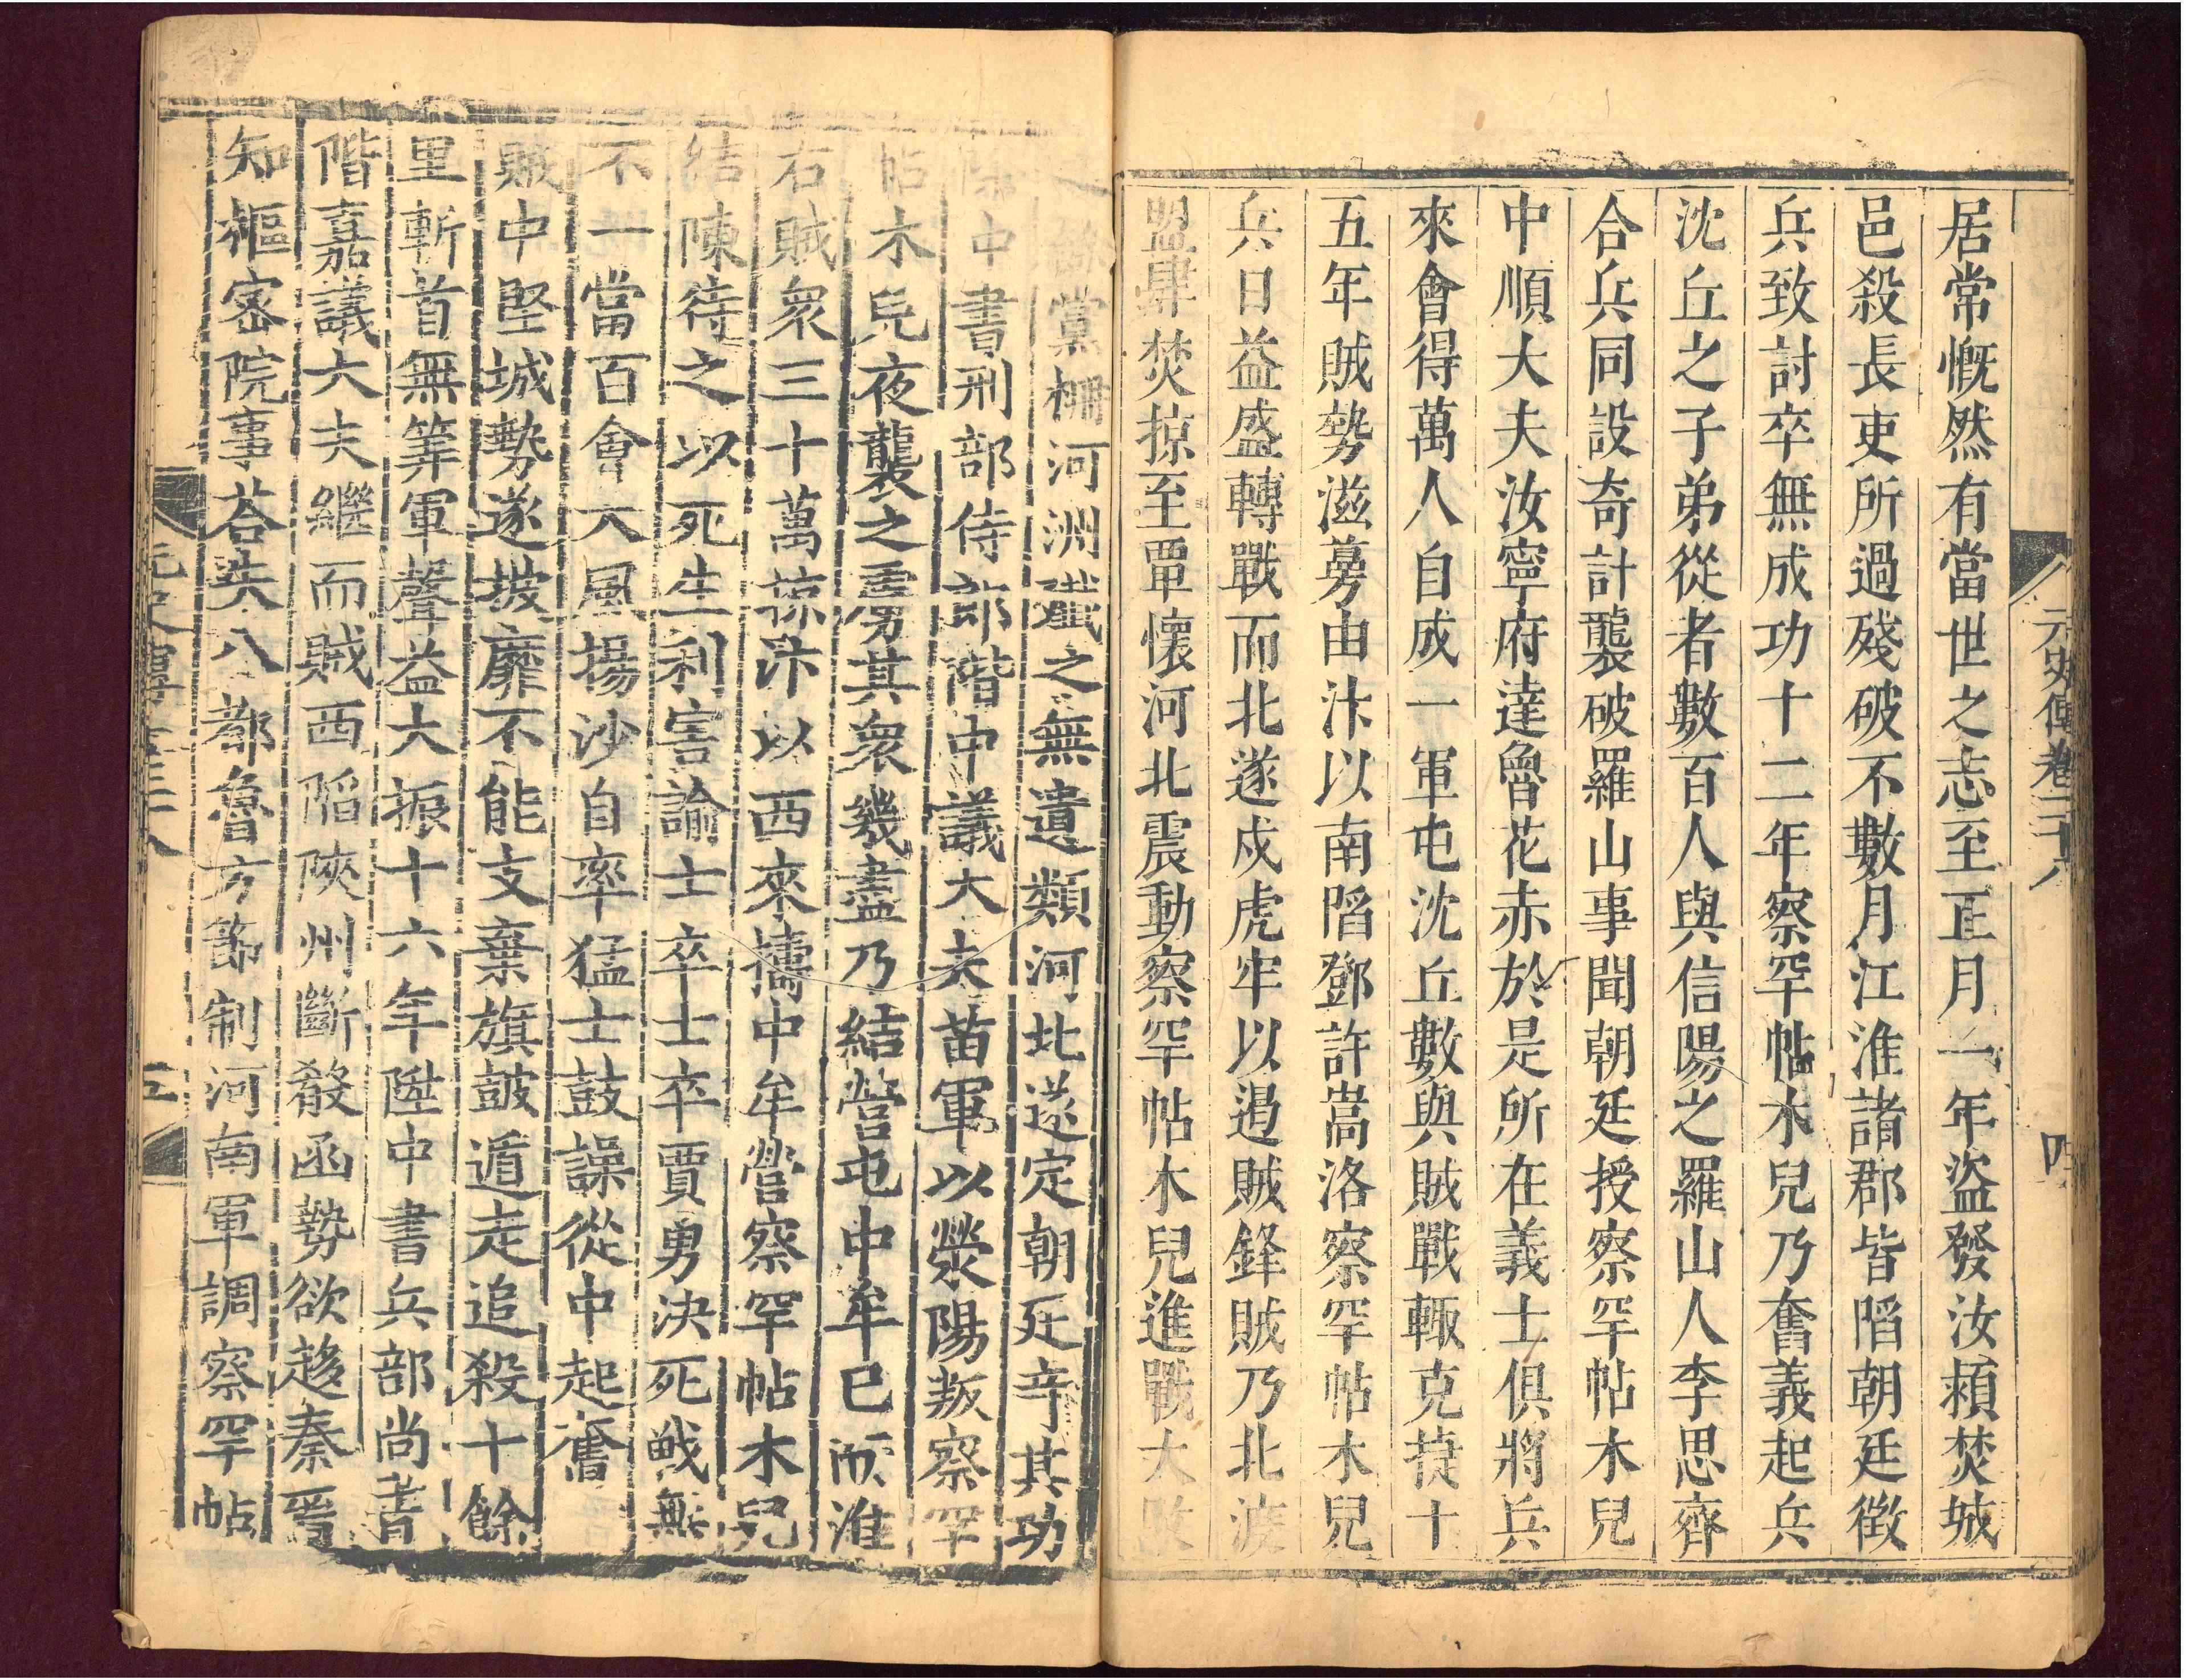 元史傳卷二十八
四
居常慨然有當世之志至正月一年盗發汝頴焚城
邑殺長吏所過殘破不數月江淮諸郡皆陷朝廷徵
兵致討卒無成功十二年察罕帖木兒乃奮義起兵
沈丘之子弟從者數百人與信陽之羅山人李思齊
合兵同設奇計襲破羅山事聞朝廷授察罕帖木兒
中順大夫汝寧府達魯花赤於是所在義士俱將兵
來會得萬人自成一軍屯沈丘數與賊戰輙克捷十
五年賊勢滋蔓由汴以南陷鄧許嵩洛察罕帖木兒
兵日益盛轉戰而北遂戍虎牢以遏賊鋒賊乃北渡
盟肆焚掠至覃懷河北震動察罕帖木兒進戰大敗
之餘黨柵河洲殲之無遺類河北遂定朝廷竒其功
除中書刑部侍郎階中議大夫苗軍以滎陽叛察罕
帖木兒夜襲之虜其衆幾盡乃結營屯中牟已而淮
右賊衆三十萬掠汴以西來擣中牟營察罕帖木兒
結陳待之以死生利害諭士卒士卒賈勇决死戰無
不一當百會大風揚沙自率猛士鼓譟從中起奮
賊中堅城勢遂披靡不能支棄旗鼓遁走追殺十餘
里斬首無筭軍聲益大振十六年陞中書兵部尚書
階嘉議大夫繼而賊西陷陝州斷殽函勢欲趍秦晉
知樞密院事荅失八都魯方節制河南軍調察罕帖
元史傳卷二十八
五